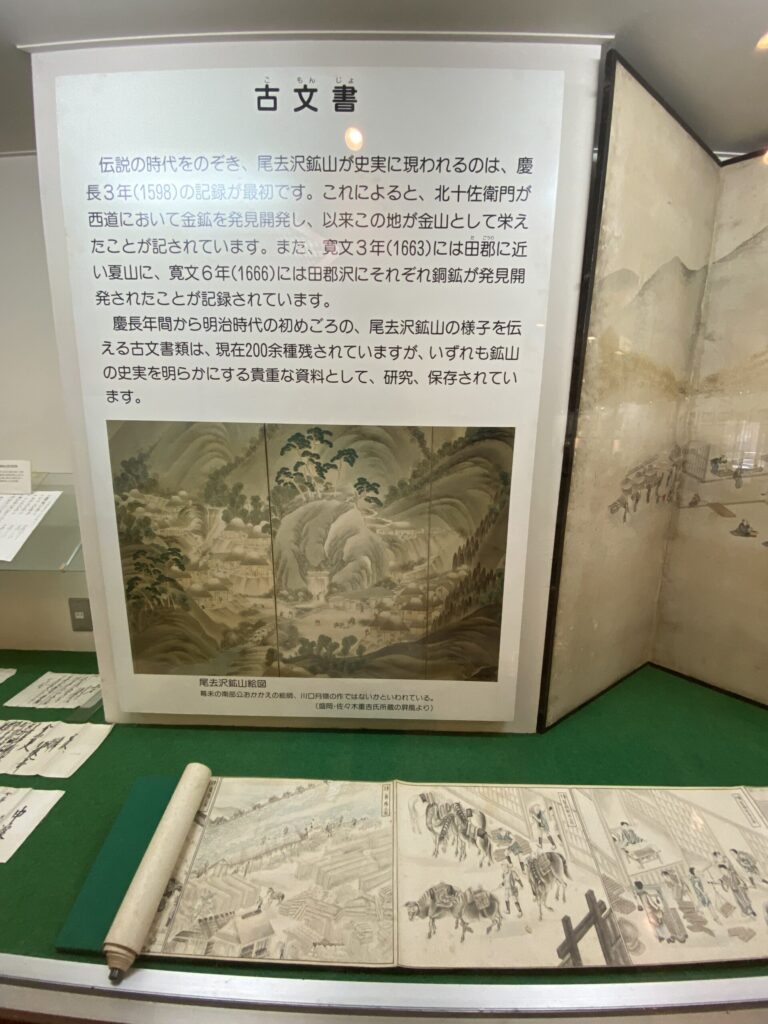 こ もん じょ
古文書
伝説の時代をのぞき、尾去沢鉱山が史実に現われるのは、慶
長3年(1598)の記録が最初です。これによると、北十佐衛門が
西道において金鉱を発見開発し、以来この地が金山として栄え
たことが記されています。また、寛文3年(1663)には田郡に近
い夏山に、寛文6年(1666)には田郡沢にそれぞれ銅鉱が発見開
発されたことが記録されています。
慶長年間から明治時代の初めごろの、尾去沢鉱山の様子を伝
える古文書類は、現在200余種残されていますが、いずれも鉱山
の史実を明らかにする貴重な資料として、研究、保存されてい
ます。
尾去沢鉱山絵図
幕末の南部公おかかえの絵師、川口月嶺の作ではないかといわれている。
(盛岡・佐々木重吉氏所蔵の屏風より)